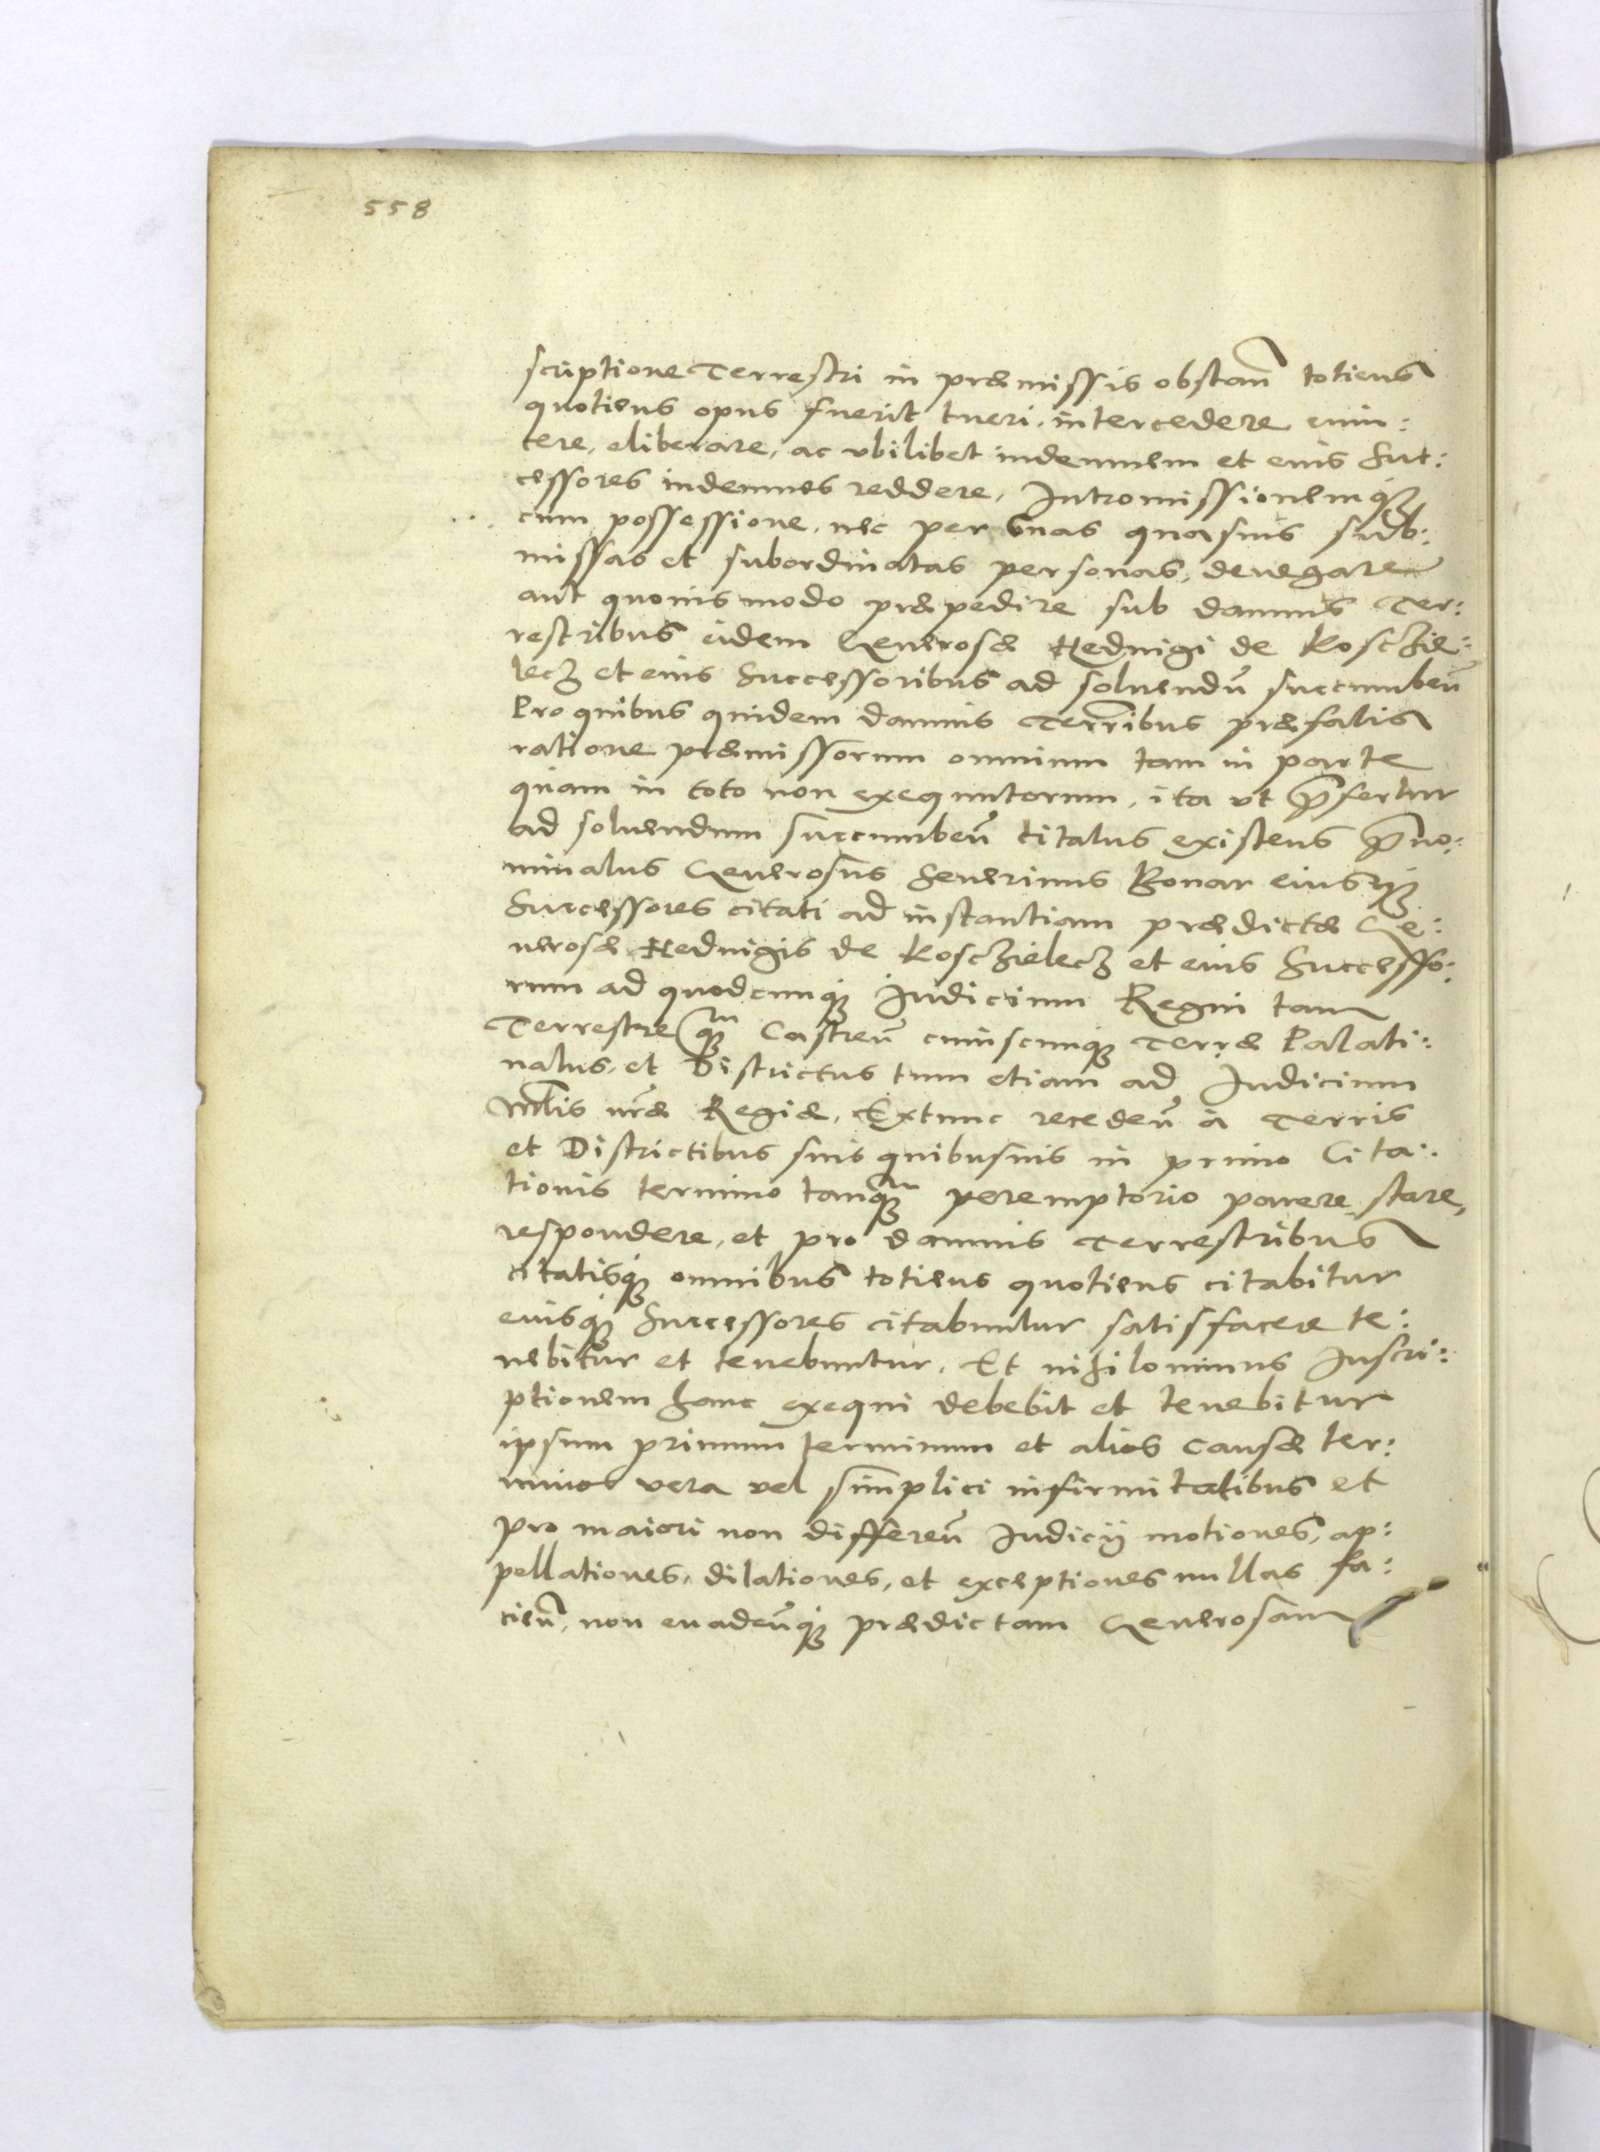 558
scriptione Terrestri in præmissis obstan̄ totiens
quotiens opus fuerit tueri, intercedere euin:
tere, eliberare, ac vbilibet indemnem et eius Suc:
cessores indemnes reddere, Intromissionemq́ꝫ
cum possessione, nec per suas quasuis sub:
missas et subordinatas personas, denegare
aut quouis modo præpedire sub damnis Ter:
restribus eidem Generosæ Heduigi de Kosczie:
lecz et eius Successoribus ad soluendū succumben̄
Pro quibus quidem damnis Terr̄ibus præfatis
ratione præmissorum omnium tam in parte
quam in toto non exequutorum, ita vt p̄fertur
ad soluendum succumben̄ citatus existens p̄no:
minatus Generosus Seuerinus Bonar eiusq́ꝫ
Successores citati ad instantiam prædictæ Ge:
nerosæ Heduigis de Kosczielecz et eius Successo:
rum ad quodcunq́ꝫ Iudicium Regni tam
Terrestre q̄ꝫ Castren̄ cuiuscunqꝫ Terræ Palati:
natus, et Districtus tum etiam ad Iudicium
Mt̄is nr̄æ Regiæ, Extunc receden̄ à Terris
et Districtibus suis quibusuis in primo Cita:
tionis termino tanq̄ꝫ peremptorio parere, stare,
respondere, et pro damnis Terrestribus
citatisq́ꝫ omnibus totiens quotiens citabitur
eiusq́ꝫ Successores citabuntur satisfacere te:
nebitur et tenebuntur. Et nihilominus Inscri:
ptionem hanc exequi debebit et tenebitur
ipsum primum terminum et alios causæ ter:
minos vera vel simplici infirmitatibus et
pro maiori non differen̄ Iudicij motiones, ap:
pellationes, dilationes, et exceptiones nullas fa:
cien̄, non euaden̄q́ꝫ prædictam Generosam